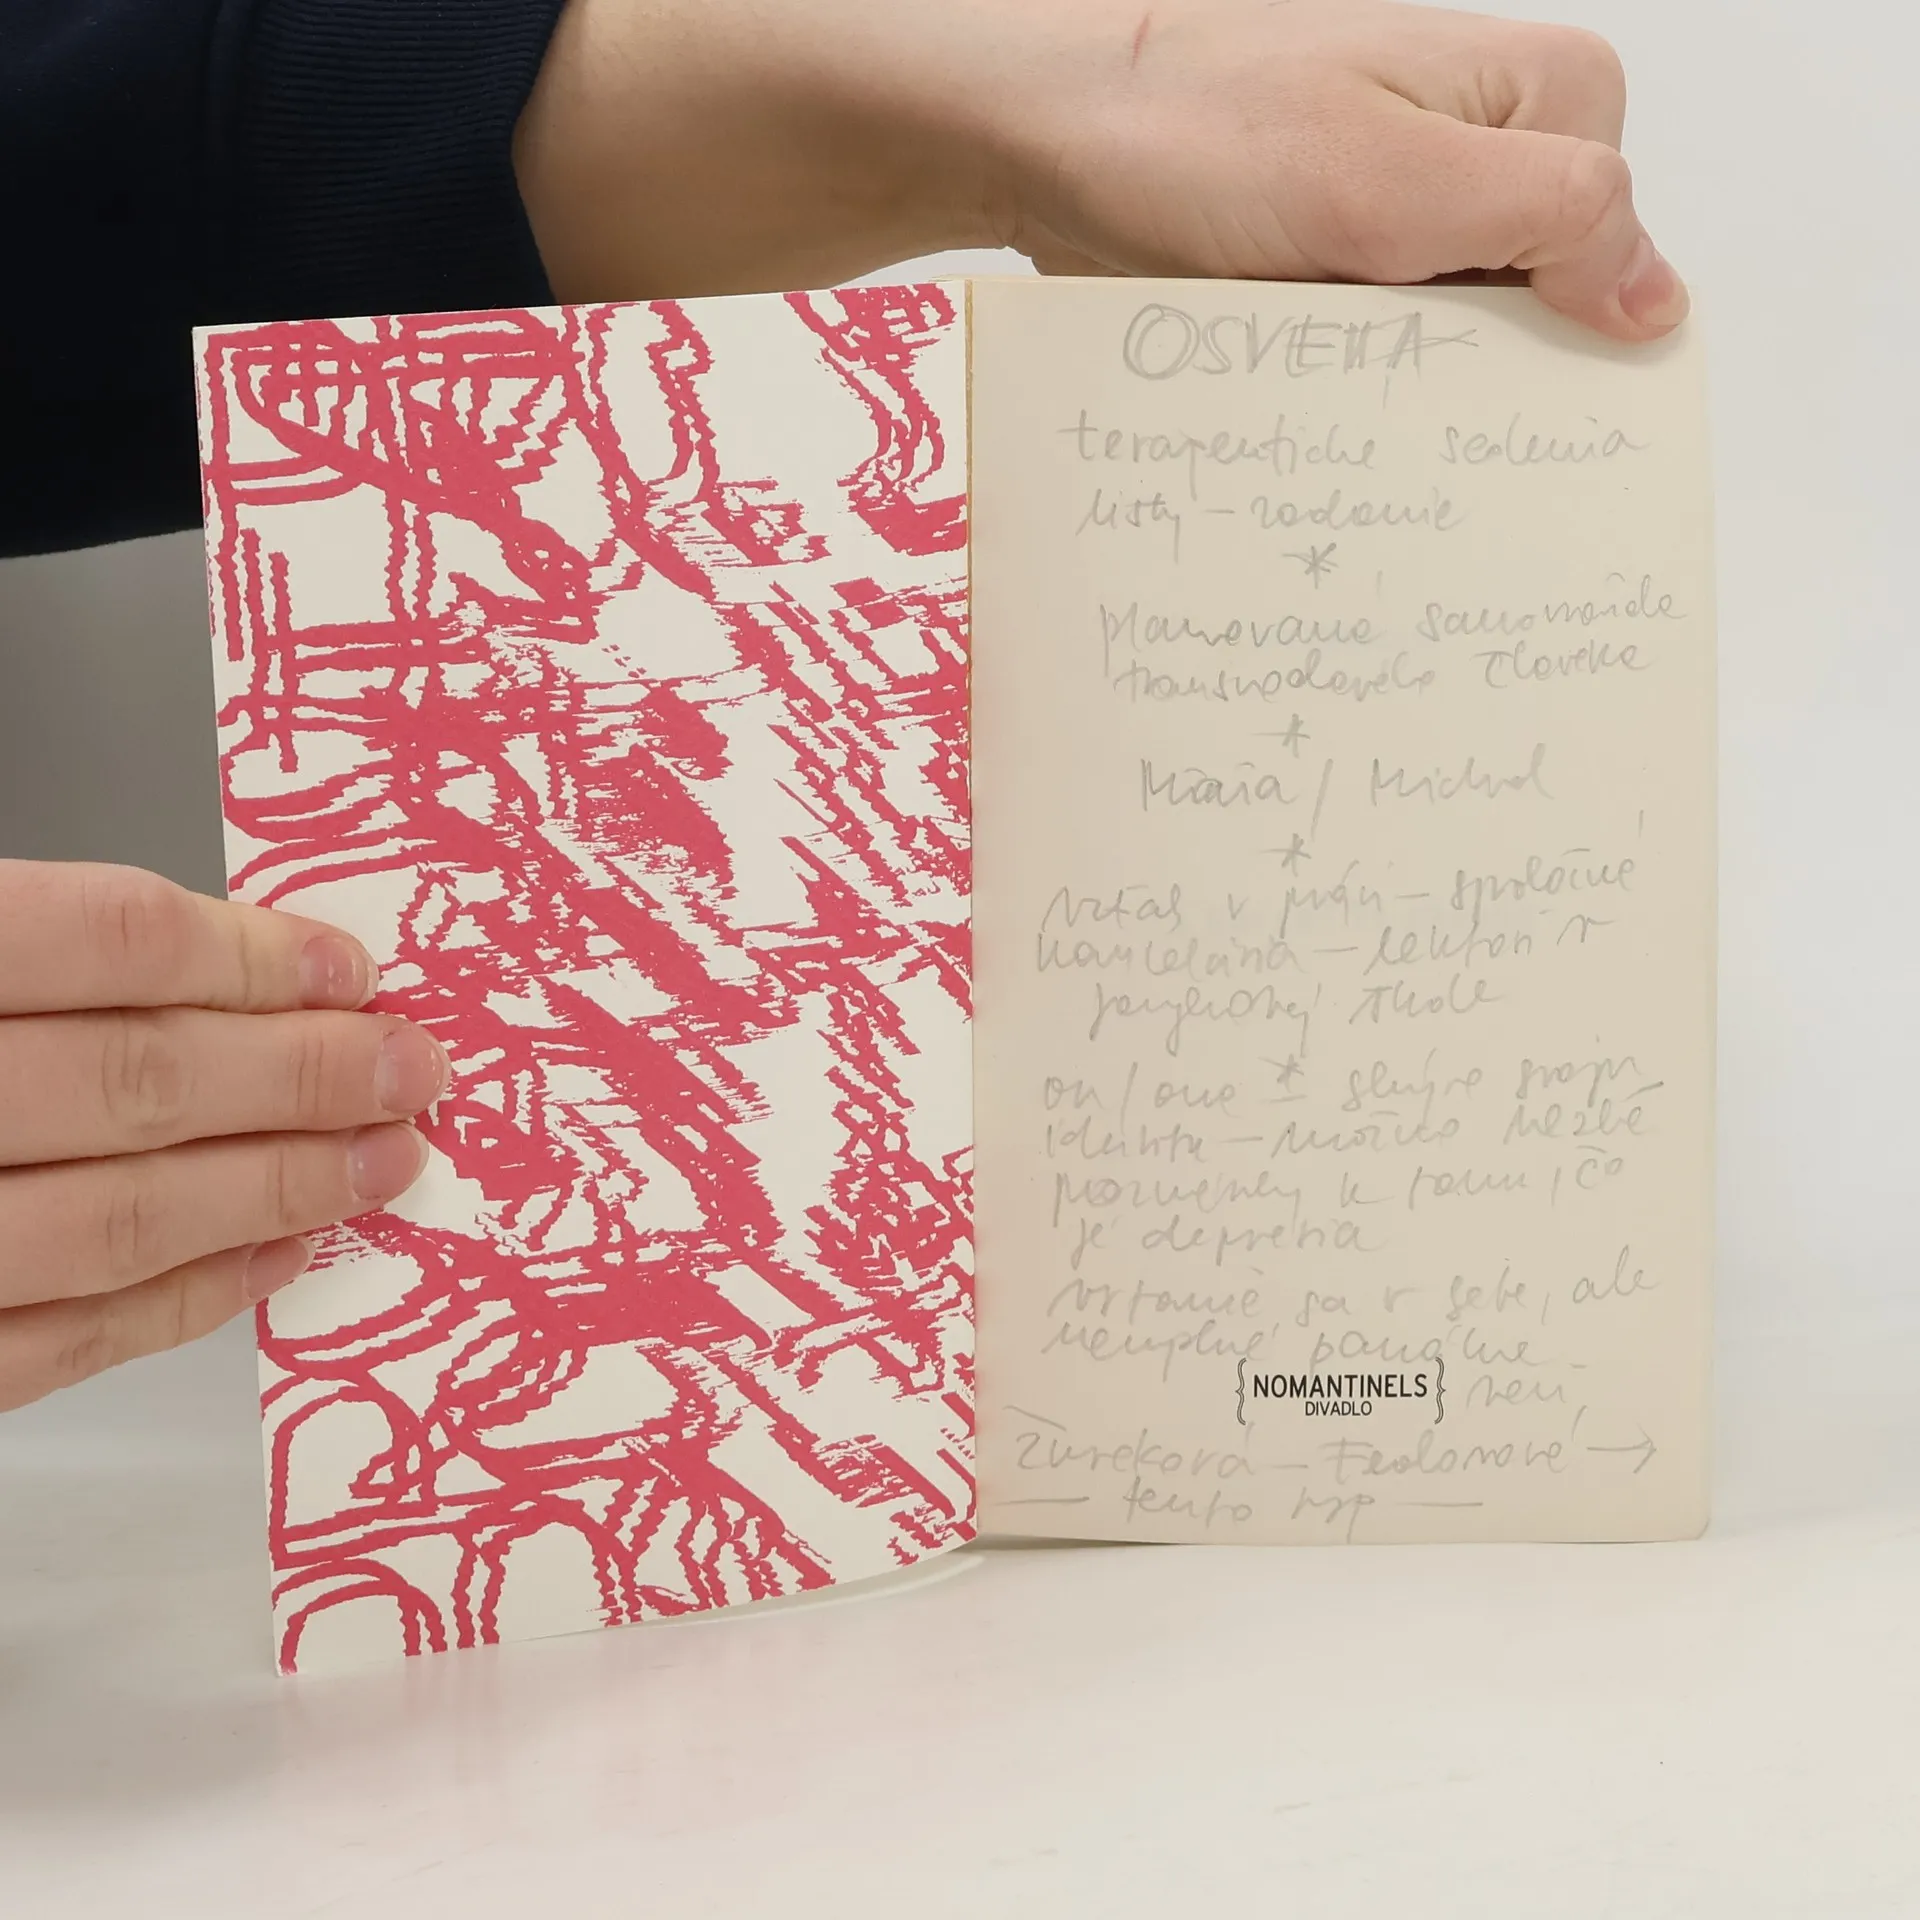 OSVETA
terapeutické sedenia
listy – zadanie
*
plánovaná samovražda
transrodového človeka
*
Michal
*
vzťah v práci – spoločná
kancelária – lektori v
jazykovej škole
*
on / ona – skúma svoju
identitu – možno nezbé
poznámky k tomu, čo
je depresia
vŕtanie sa v sebe, ale
neuplné
není
{NOMANTINELS}
DIVADLO
Žureková – →
— tento typ —